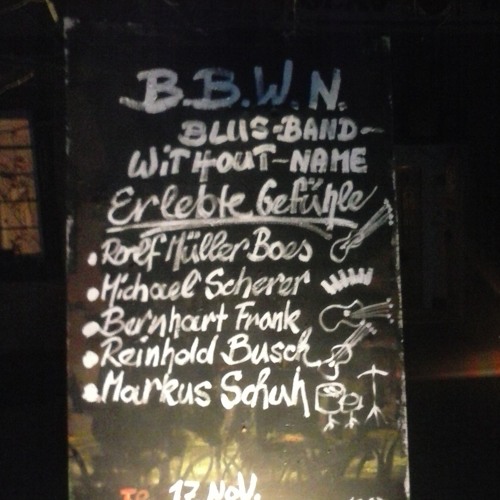 B.B.W.N.
BLUS-BAND-
WITHOUT-NAME
Erlebte Gefühle
• Rolf Müller Boes
• Michael Scherer
• Bernhart Frank
• Reinhold Busch
• Markus Schuh
17 NOV.